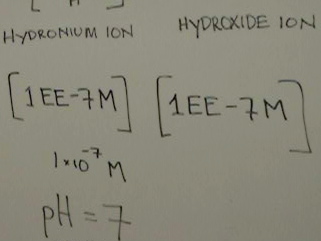 [ H ]
HYDRONIUM ION HYDROXIDE ION
[1EE-7M] [1EE-7M]
1×10⁻⁷ M
pH = 7